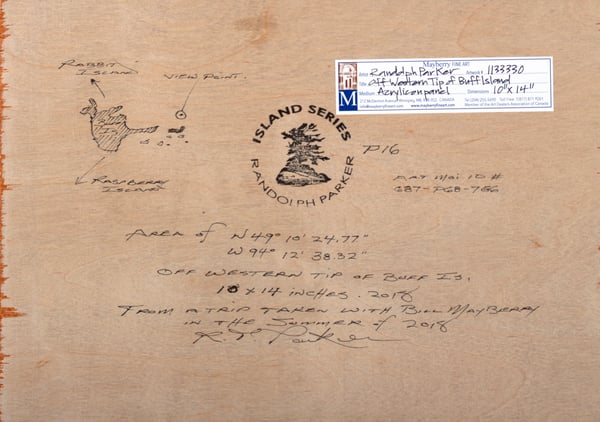 RABBIT
ISLAND
VIEW POINT.
BUFF
IS.
RASPBERRY
ISLAND
ISLAND SERIES
RANDOLPH PARKER
P16
Mayberry FINE ART
Artist Randolph Parker Artwork # 1133330
Title Off Western Tip of Buff Island
Medium Acrylic on panel Dimensions 10" x 14"
M
212 McDermot Avenue Winnipeg, MB, R3B 0S3 CANADA Tel (204) 255-5690 Toll Free 1 (877) 871-9261
info@mayberryfineart.com www.mayberryfineart.com Member of the Art Dealer's Association of Canada
ART MOI ID #
AREA OF N 49° 10' 24.77"
W 94° 12' 38.32"
OFF WESTERN TIP OF BUFF IS.
10 x 14 INCHES. 2018
FROM A TRIP TAKEN WITH BILL MAYBERRY
IN THE SUMMER OF 2018